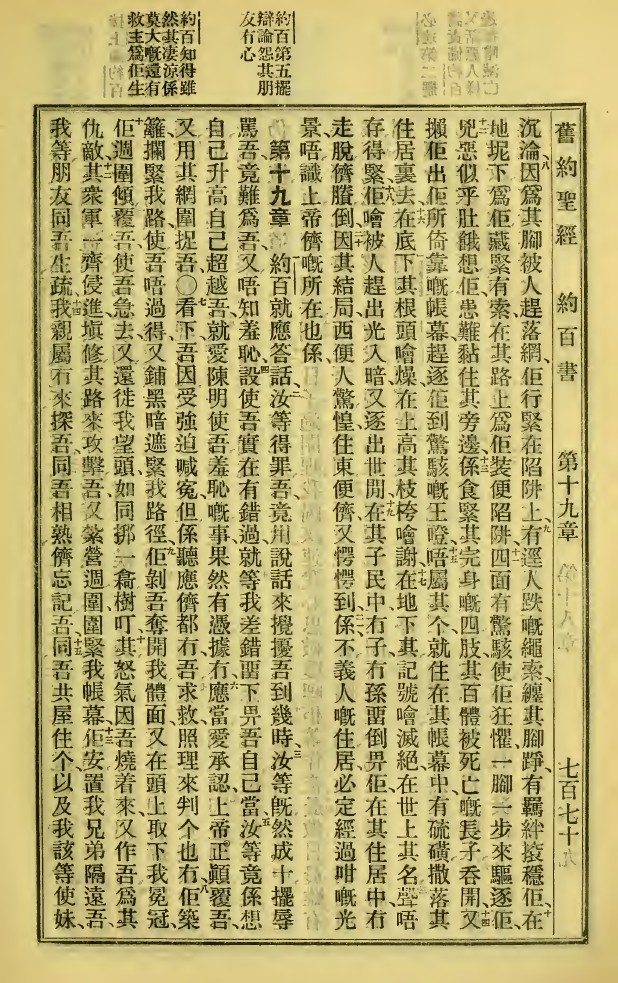 約百第五擺
辯論怨其朋
友有心
約百知得雖
然其凄涼係
莫大嘅還有
救主爲佢生
舊約聖經 約百書 第十九章 七百七十九
沉淪、八因爲其腳被人趕落網、佢行緊在陷阱上、九有逕人跌嘅繩索纏其腳踭、有羈絆㨆穩佢、十在
地坭下爲佢藏緊有索、在其路上爲佢裝便陷阱、十一四面有驚駭使佢狂懼、一腳一步來驅逐佢、
十二兇惡似乎肚餓想佢、患難黏住其旁邊、十三係食緊其完身嘅四肢、其百體被死亡嘅長子吞開、十四又
攋佢出佢所倚靠嘅帳幕、趕逐佢到驚駭嘅王噔、十五唔屬其个就住在其帳幕中、有硫磺撒落其
住居裏去、十六在底下其根頭噲燥、在上高其枝桍噲謝、十七在地下其記號噲滅絕、在世上其名聲唔
存得緊、十八佢噲被人趕出光入暗、又逐出世間、十九在其子民中冇子冇孫畱倒畀佢、在其住居中冇
走脫儕賸倒、二十因其結局西便人驚惶、住東便儕又愕愕到、二一係不義人嘅住居必定經過咁嘅光
景、唔識上帝儕嘅所在也係
第十九章 一約百就應答話、二汝等得罪吾、竟用說話來攪擾吾到幾時、三汝等旣然成十擺辱
駡吾、竟難爲吾又唔知羞恥、四設使吾實在有錯過、就等我差錯畱下畀吾自己當、五汝等竟係想
自己升高自己超越吾、就愛陳明使吾羞恥嘅事、果然有憑據冇、六應當愛承認上帝正顚覆吾、
又用其網圍捉吾、〇七看下吾因受強迫喊寃、但係聽應儕都冇、吾求救、照理來判个也冇、八佢築
籬攔緊我路、使吾唔過得、又鋪黑暗遮緊我路徑、九佢剝吾奪開我體面、又在頭上取下我冕冠、
十佢週圍傾覆吾、使吾急去、又還徙我望頭如同挷一樖樹叮、十一其怒氣因吾燒着來、又作吾爲其
仇敵、十二其衆軍一齊侵進、塡修其路來攻擊吾、又紥營週圍圍緊我帳幕、十三佢安置我兄弟隔遠吾、
我等朋友同吾生疏、十四我親屬冇來探吾、同吾相熟儕忘記吾、十五同吾共屋住个、以及我該等使妹、